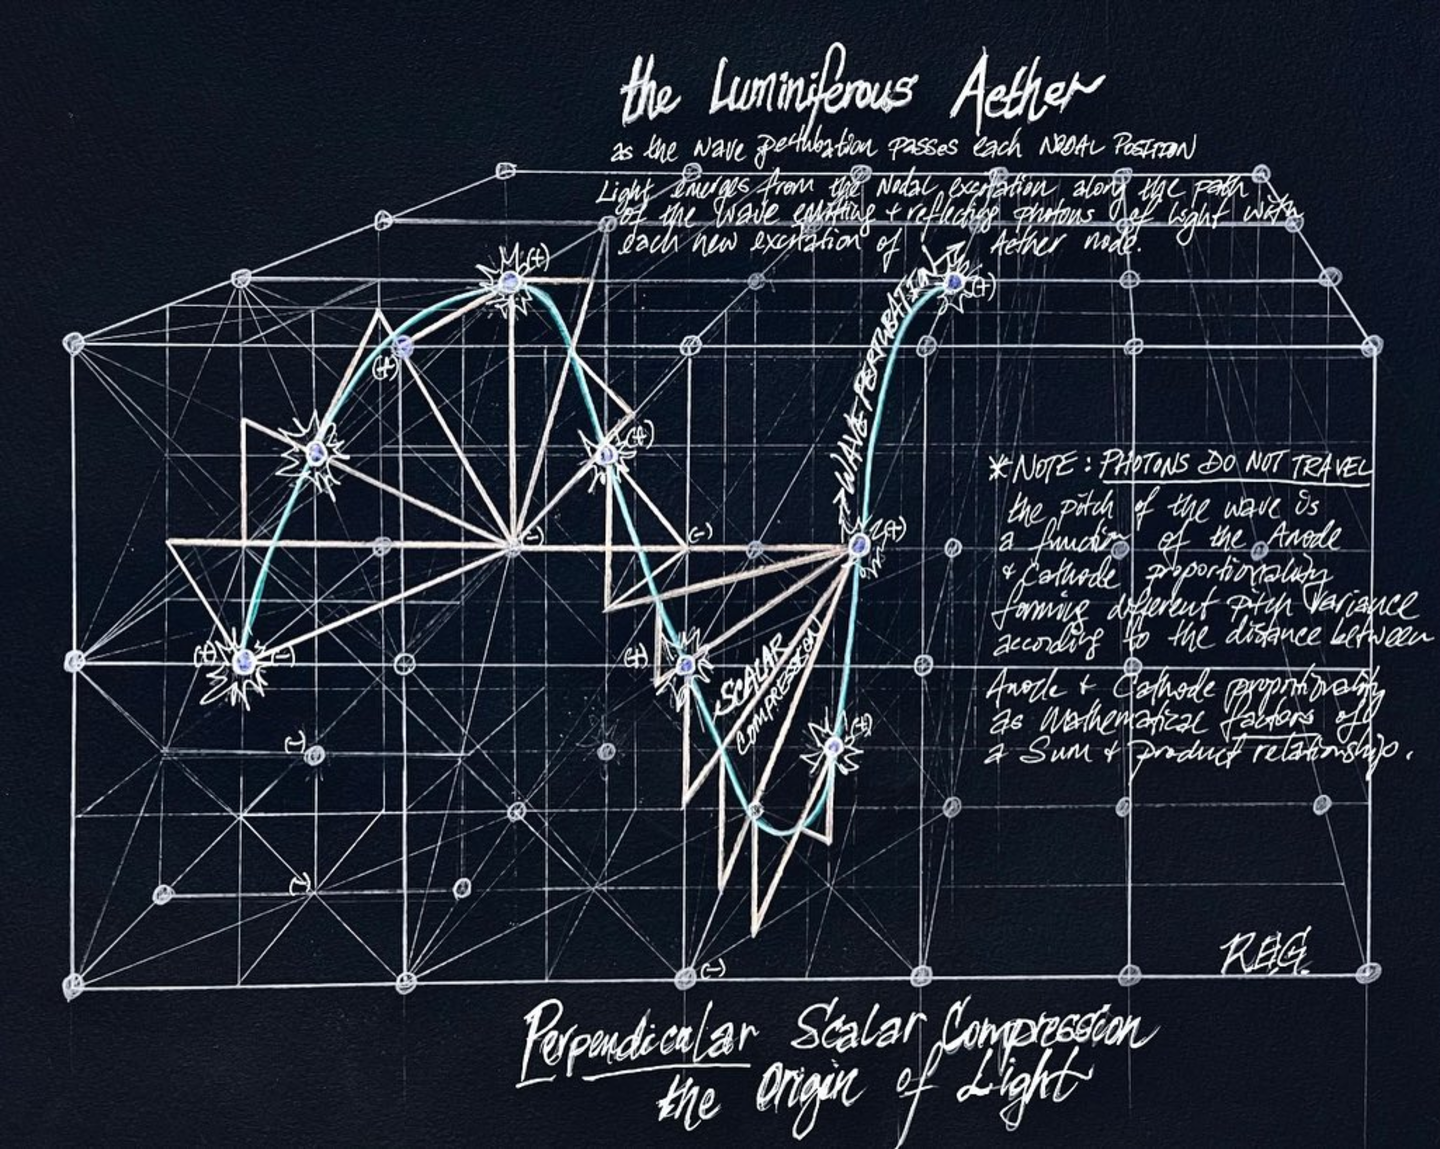 the Luminiferous Aether
as the wave perturbation passes each NODAL POSITION
Light emerges from the Nodal excitation along the path
of the wave emitting + reflecting photons of light with
each new excitation of Aether node.
(+)
(+)
(+)
→ WAVE PERTURBATION →
(+)
*NOTE: PHOTONS DO NOT TRAVEL
the pitch of the wave is
a function of the Anode
+ Cathode proportionality
forming different pitch variance
according to the distance between
Anode + Cathode proportionality
as Mathematical factors of
a Sum + product relationship.
(-)
(-)
(+)
(+)
(-)
(+)
SCALAR
COMPRESSION
(+)
(-)
(-)
(-)
REG.
Perpendicular Scalar Compression
the Origin of Light